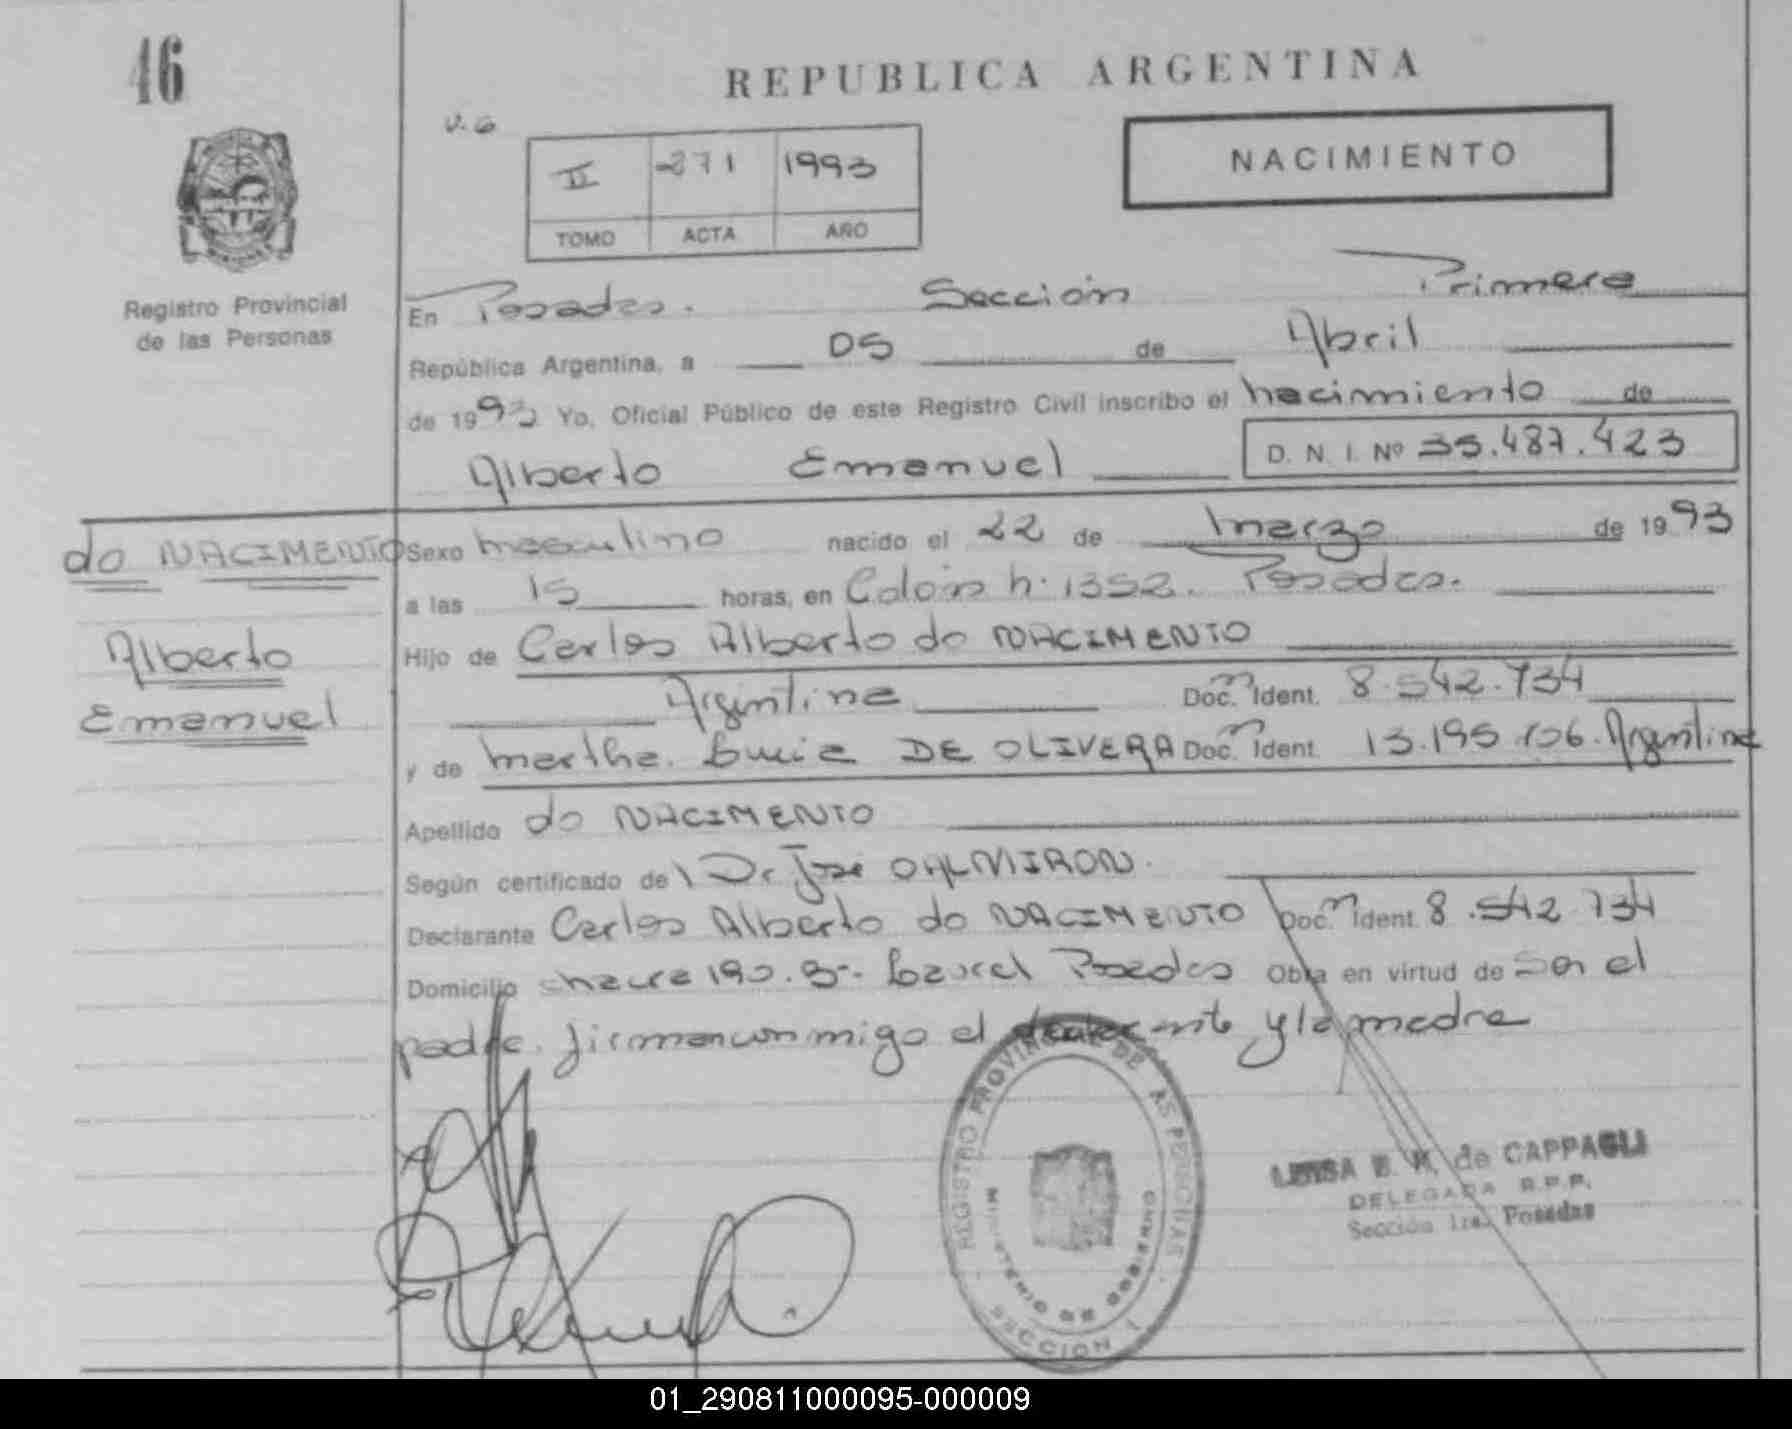 46
REPUBLICA ARGENTINA
V. G
II 271 1993
TOMO ACTA AÑO
NACIMIENTO
Registro Provincial
de las Personas
En Posadas. Sección Primera
República Argentina, a 05 de Abril
de 1993 Yo, Oficial Público de este Registro Civil inscribo el nacimiento de
Alberto Emanuel D. N. I. Nº 35.487.423
do NACIMENTO
Alberto
Emanuel
Sexo masculino nacido el 22 de marzo de 1993
a las 15 horas, en Colón n. 1352. Posadas.
Hijo de Carlos Alberto do NACIMENTO
Argentina Doc. Ident. 8.542.734
y de Martha Lucia DE OLIVERA Doc. Ident. 13.195.106. Argentina
Apellido do NACIMENTO
Según certificado del Dr José
Declarante Carlos Alberto do NACIMENTO Doc. Ident. 8.542.734
Domicilio Posadas Obra en virtud de Ser el
padre. firman conmigo el y la madre
REGISTRO PROVINCIAL DE LAS PERSONAS
MINISTERIO DE GOBIERNO
SECCION 1
de CAPPAGLI
DELEGADA R.P.P.
Sección 1ra. Posadas
01_290811000095-000009